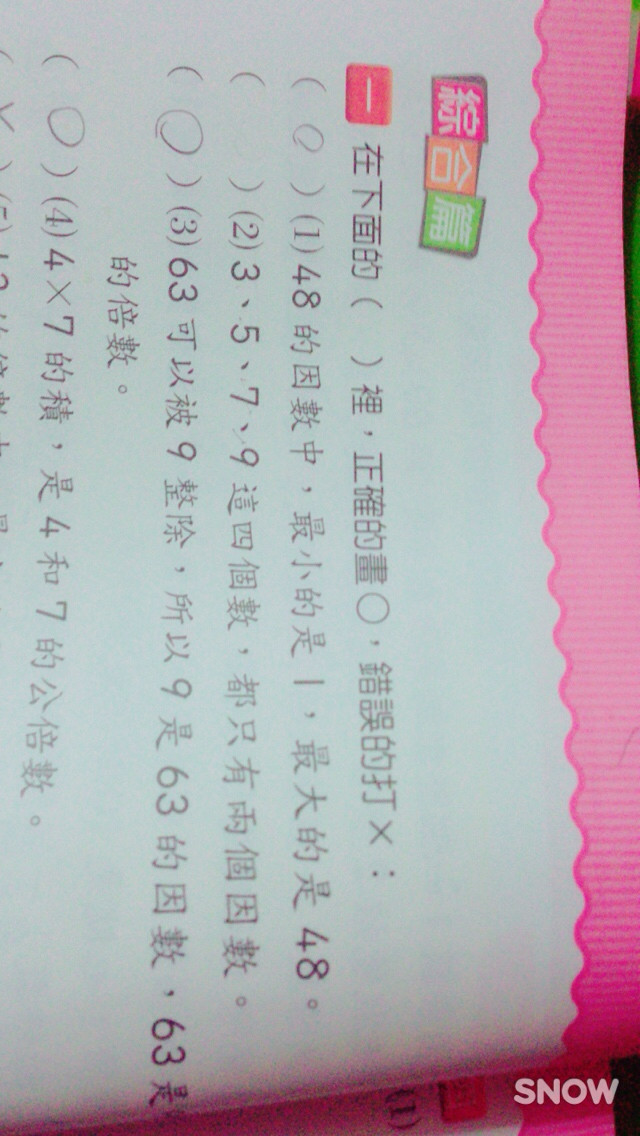 綜合篇
一 在下面的（ ）裡，正確的畫○，錯誤的打×：
（○）(1) 48的因數中，最小的是1，最大的是48。
（ ）(2) 3、5、7、9這四個數，都只有兩個因數。
（○）(3) 63可以被9整除，所以9是63的因數，63是
的倍數。
（○）(4) 4×7的積，是4和7的公倍數。
(1)
SNOW